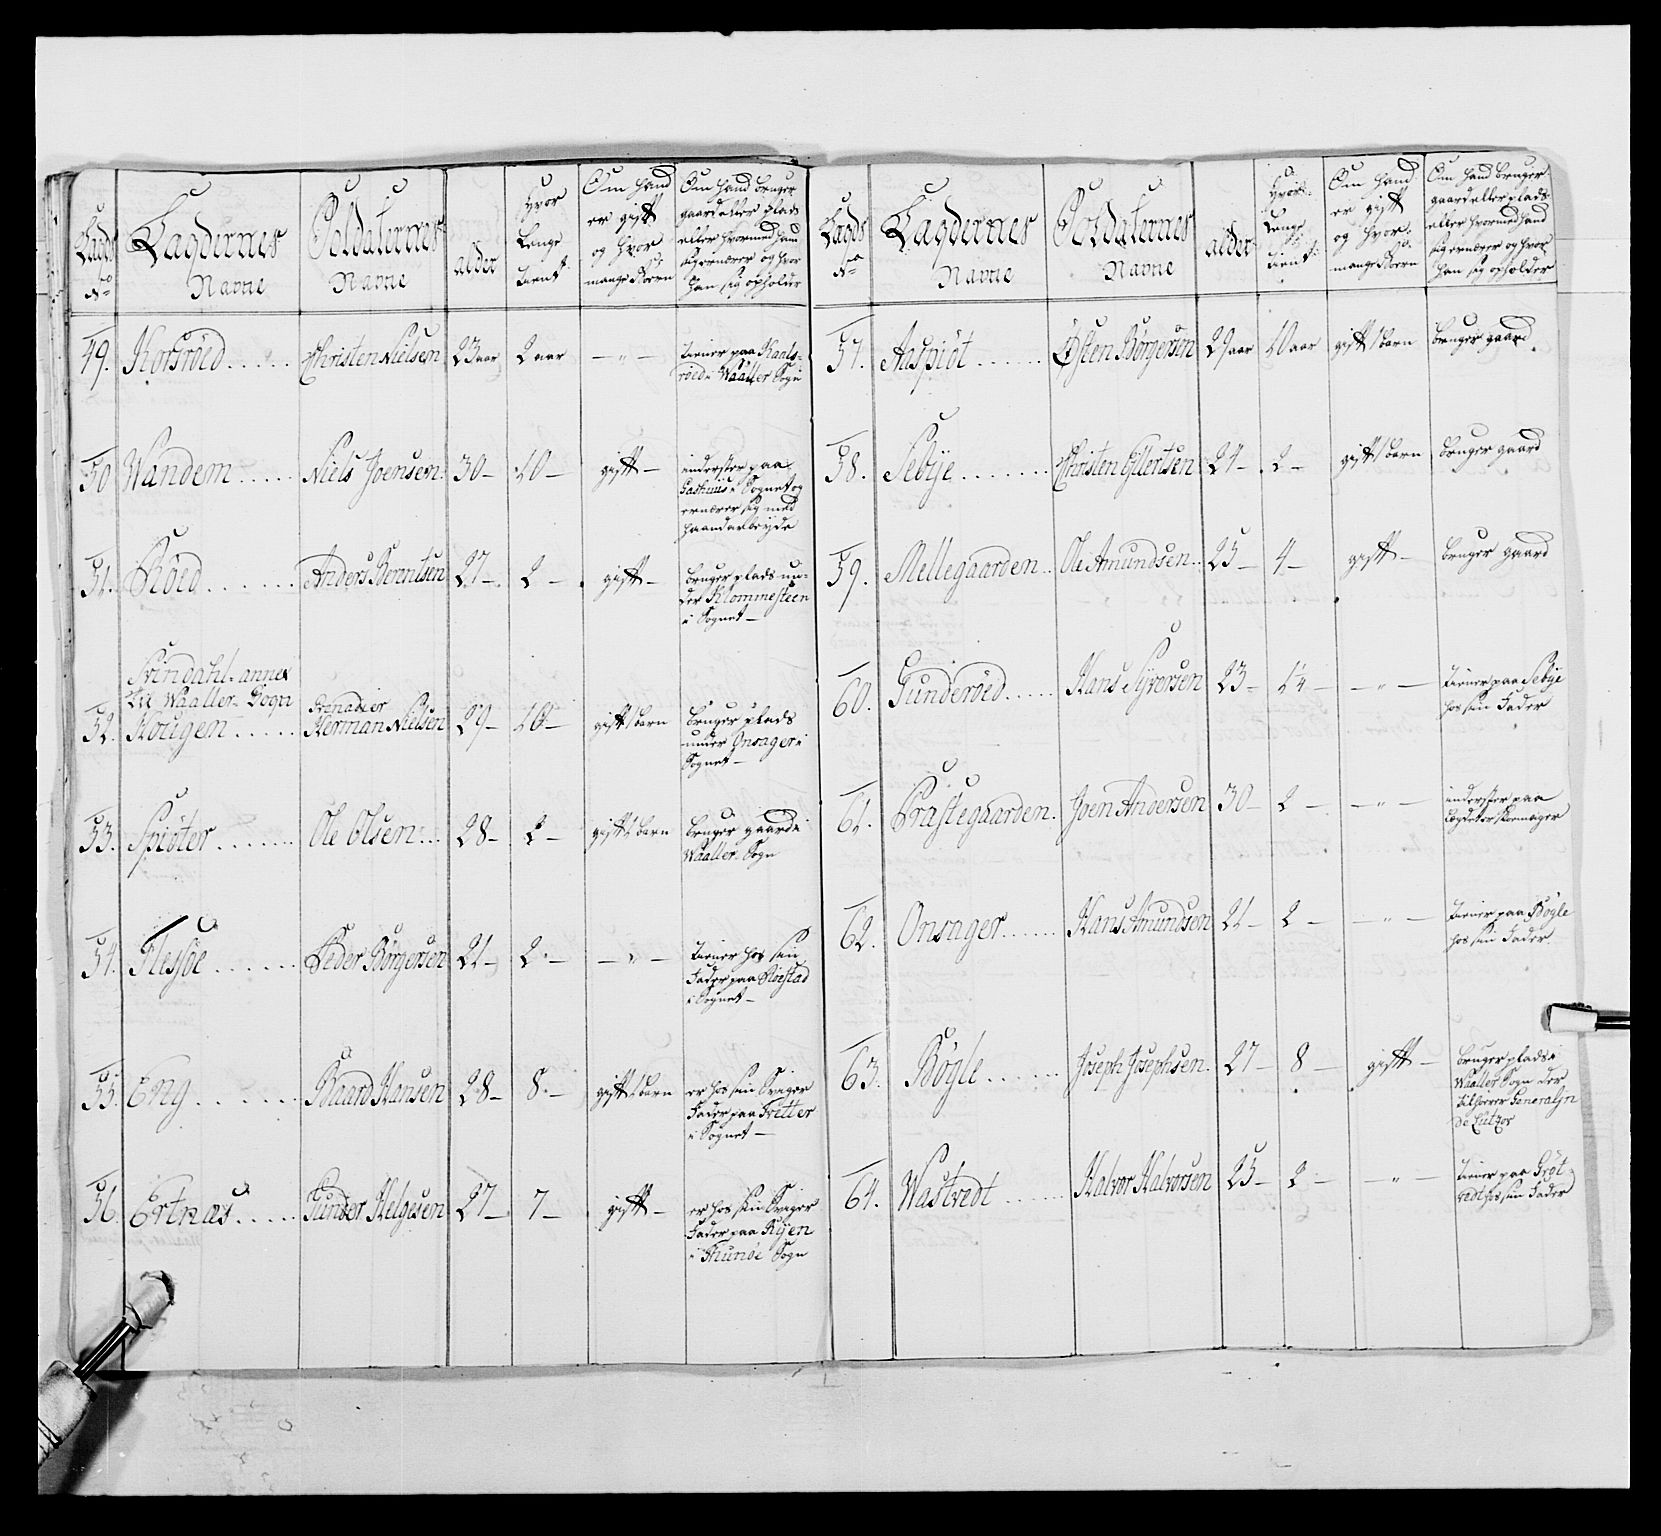 Lægds No
Lægdernes Navne
Soldaternes Navne
alder
Hvor Lenge tient
Om hand er gift og hvor mange børn
Om hand bruger gaard eller plads eller hvormed han sig ernærer og hvor han sig opholder
49. Korsröed ..... Christen Nielsen 23 aar 2 aar — " — tiener paa
röed i Waaller Sogn
50 Wandem ..... Niels Joensen 30 — 10 — gift — inderster paa
i Sognet og
ernærer sig med
haandarbeyde
51. Röed ..... Anders Berentsen 27 — 2 — gift — bruger plads un-
der Klommesteen
i Sognet —
Svindahl annex
til Waaller Sogn
Grenadier
52. Hougen ..... Herman Nielsen 29 — 10 — gift 1 barn bruger plads
under Onsager i
Sognet —
53. Spiöter ..... Ole Olsen ... 28 — 2 — gift 1 barn bruger gaard i
Waaller Sogn
54. Flesiöe ..... Peder Börgersen 21 — 2 — — " — tiener hos sin
Fader paa
i Sognet —
55. Eng ..... Baard Hansen 28 — 8 — gift 1 barn er hos sin Sviger
Fader paa Tvetter
i Sognet —
56. Ertnæs ..... Gunder Helgesen 27 — 7 — gift — er hos sin Sviger
Fader paa Ryen
i Thunöe Sogn
Lægds No
Lægdernes Navne
Soldaternes Navne
alder
Hvor Lenge tient
Om hand er gift og hvor mange børn
Om hand bruger gaard eller plads eller hvormed hand sig ernærer og hvor han sig opholder
57. Aaspiöt ..... Östen Börgersen 29 aar 10 aar gift 1 barn bruger gaard
58. Sebye ..... Christen Eilertsen 24 — 2 — gift 1 barn bruger gaard
59. Mellegaarden .. Ole Amundsen .. 25 — 4 — gift — bruger gaard
60. Gunderöed ..... Hans Syversen 23 — 1/4 — — " — tiener paa Sebye
hos sin Fader
61. Præstegaarden . Joen Andersen 30 — 2 — — " — inderster paa
Lægdet er skomager
62. Onsager ..... Hans Amundsen 21 — 2 — — " — tiener paa Bögle
hos sin Fader
63. Bögle ..... Joseph Josephsen. 27 — 8 — gift — bruger plads i
Waaller Sogn der
tilhörer Generalin
de Lützov
64. Wastvedt ..... Halvor Halvorsen 25 — 2 — — " — tiener paa Gröt-
vedt hos sin Fader